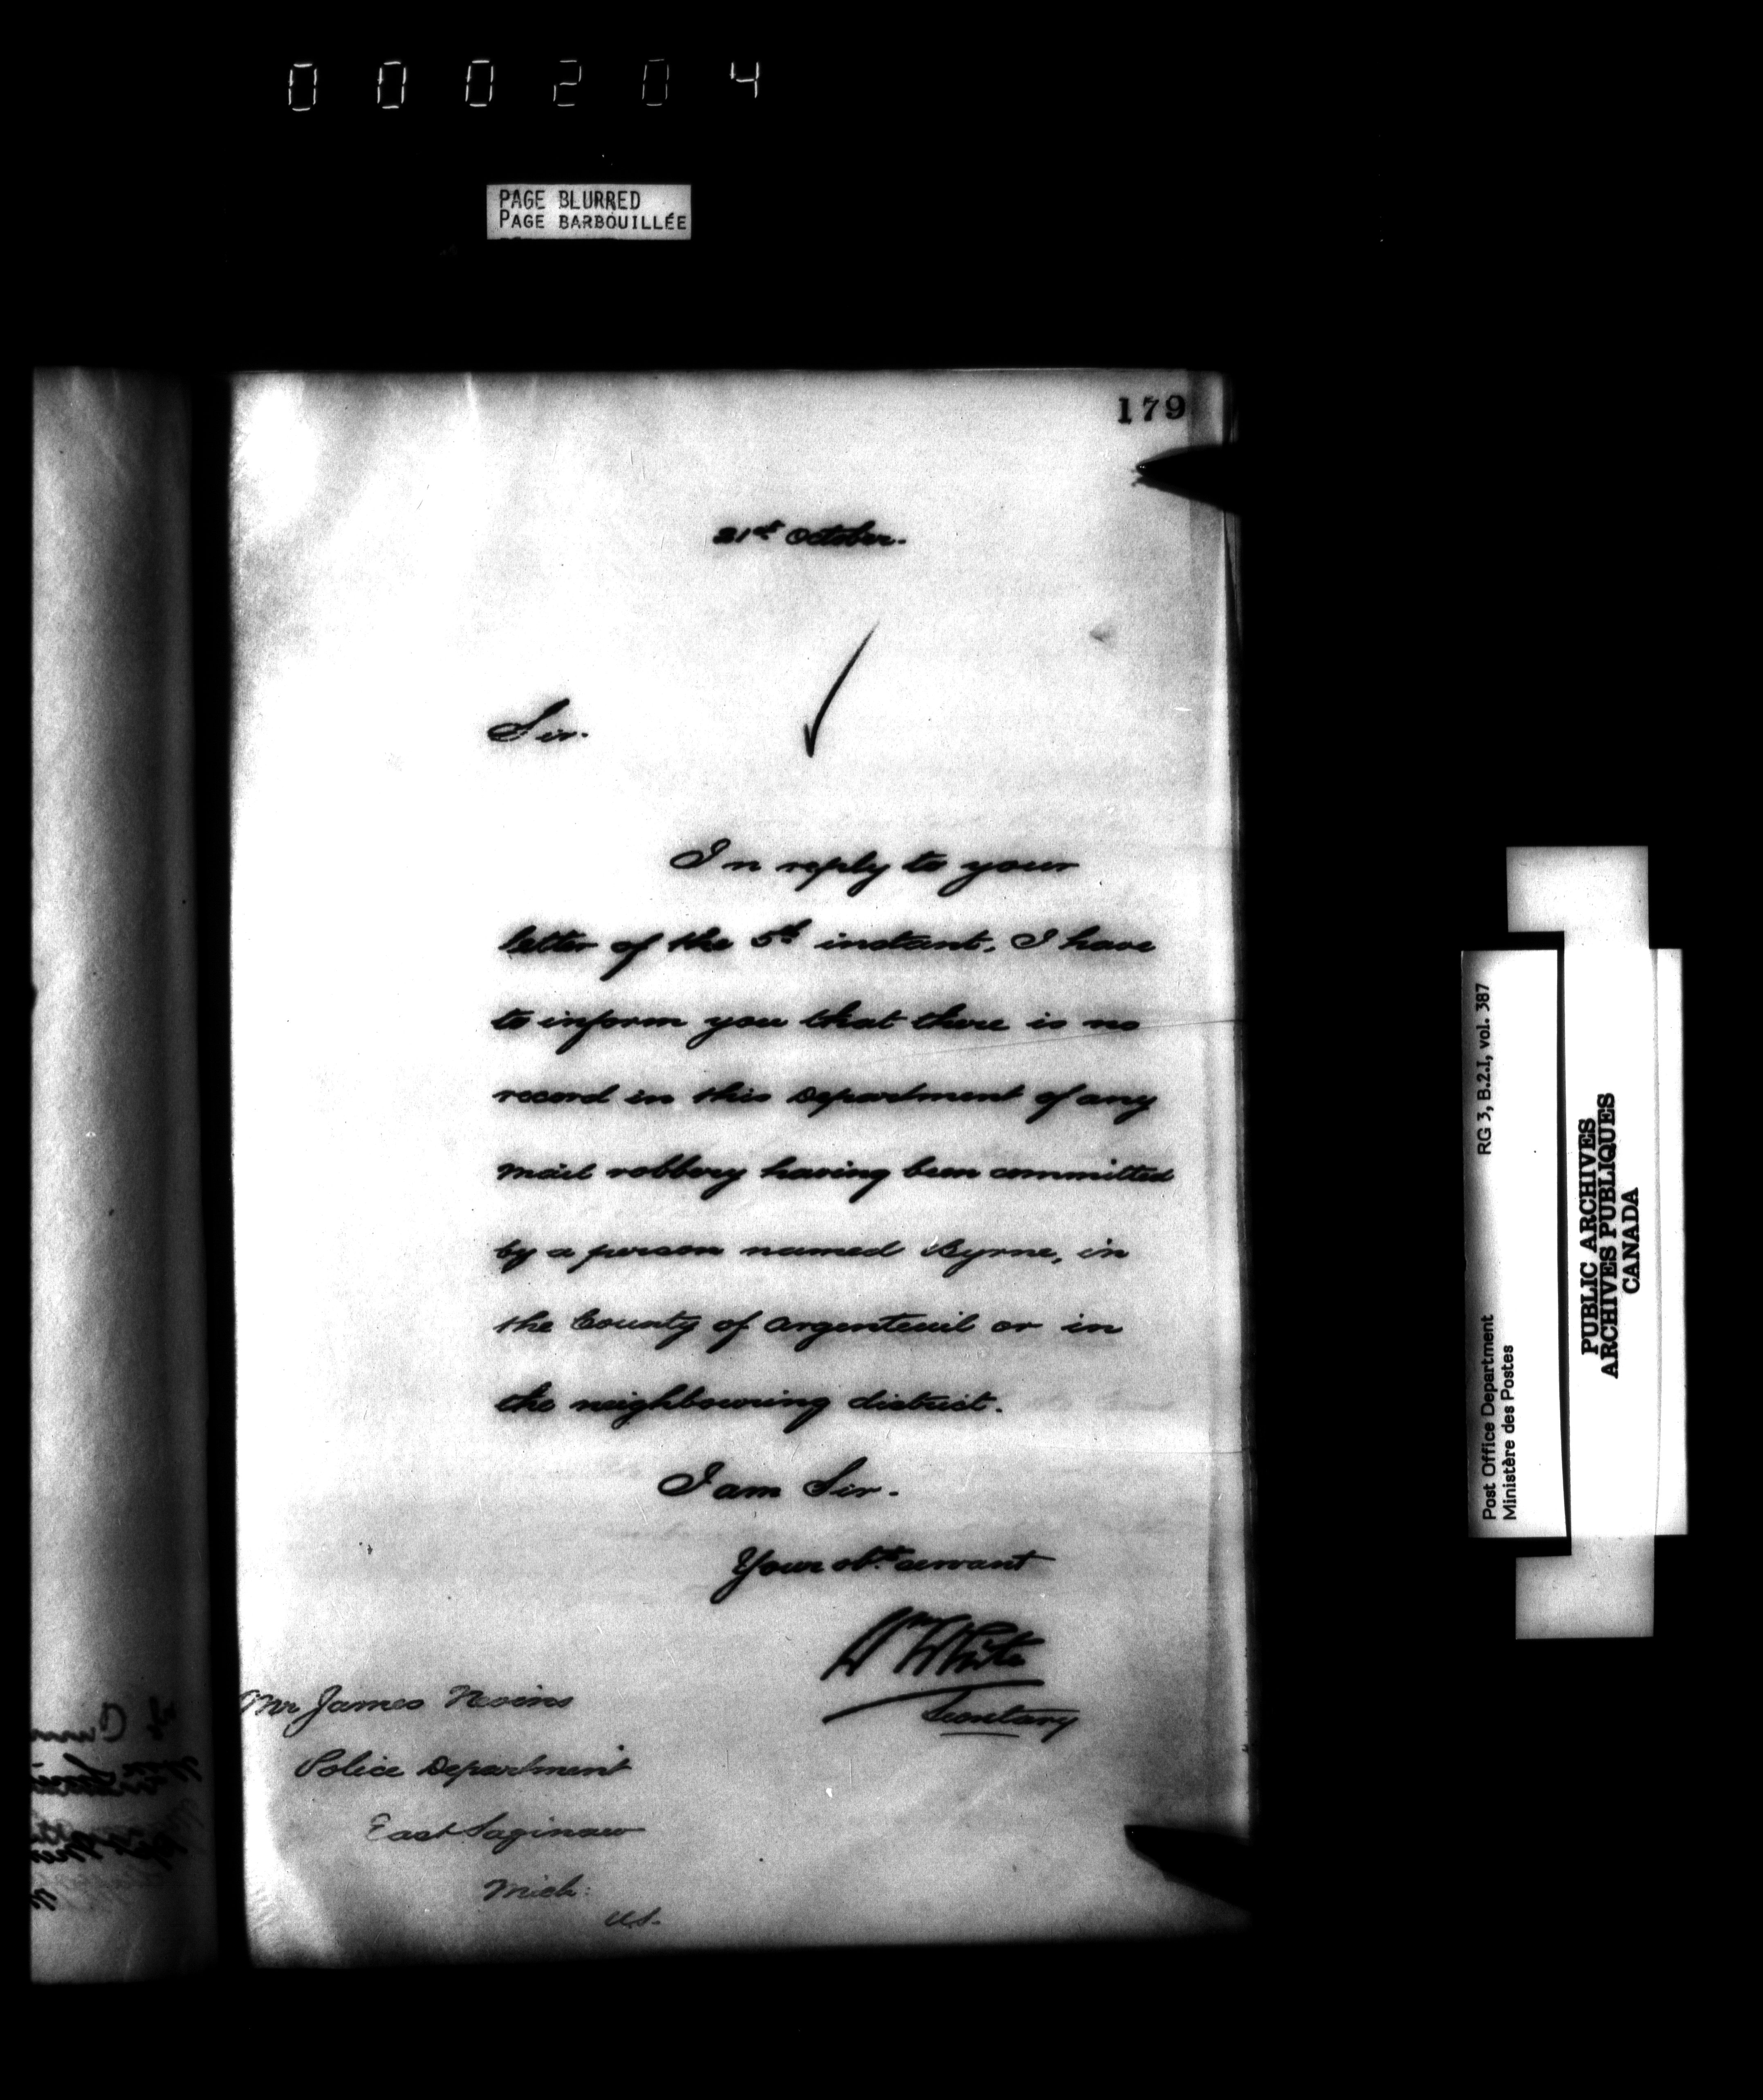 000204
PAGE BLURRED
PAGE BARBOUILLÉE
179
21st October.
Sir.
In reply to your
letter of the 5th instant, I have
to inform you that there is no
record in this Department of any
mail robbery having been committed
by a person named Byrne, in
the County of Argenteuil or in
the neighbouring district.
I am Sir.
Your obt. servant
Wm White
Secretary
Mr James Nevins
Police Department
East Saginaw
Mich:
U.S.
Post Office Department RG 3, B.2.I, vol. 387
Ministère des Postes
PUBLIC ARCHIVES
ARCHIVES PUBLIQUES
CANADA